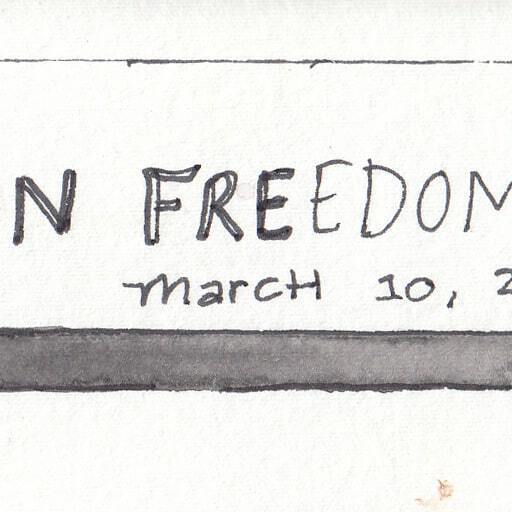 N FREEDOM
March 10, 2